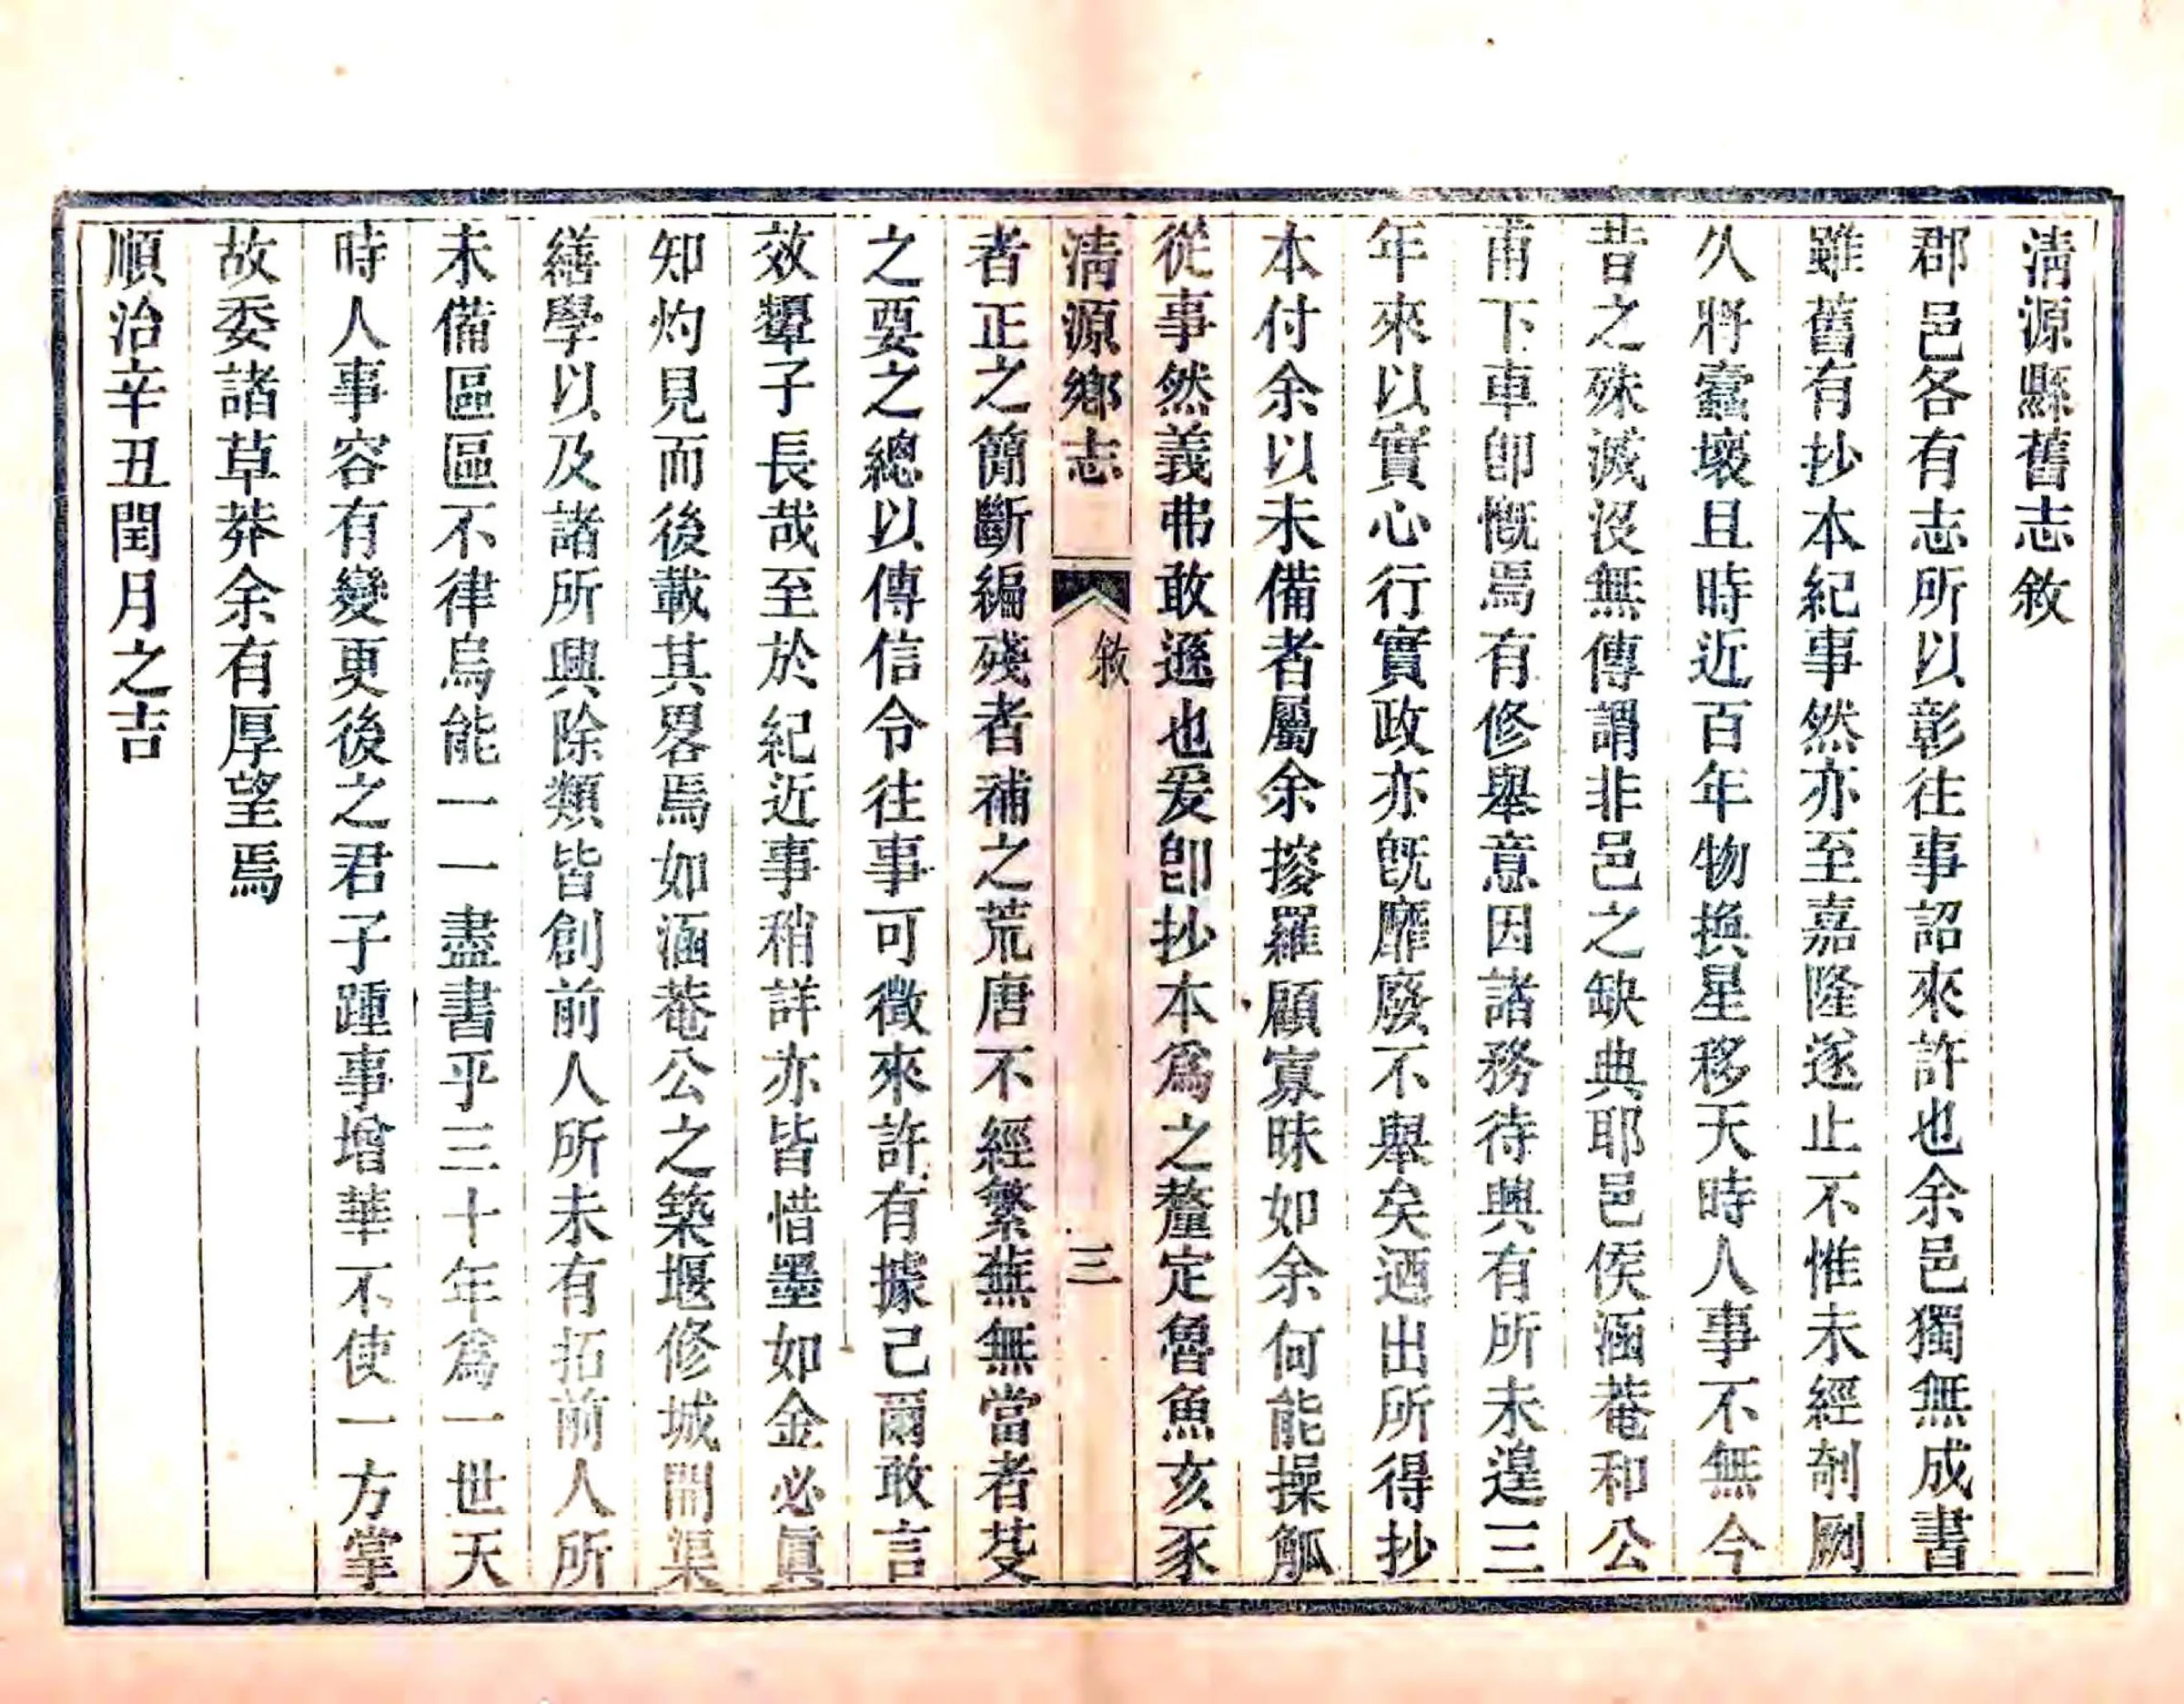 淸源縣舊志敘
郡邑各有志所以彰往事詔來許也余邑獨無成書
雖舊有抄本紀事然亦至嘉隆遂止不惟未經剞劂
久將蠹壞且時近百年物換星移天時人事不無今
昔之殊滅沒無傳謂非邑之缺典耶邑侯涵菴和公
甫下車卽慨焉有修舉意因諸務待興有所未遑三
年來以實心行實政亦旣靡廢不舉矣迺出所得抄
本付余以未備者屬余搜羅顧寡昧如余何能操觚
從事然義弗敢遜也爰卽抄本爲之釐定魯魚亥豕
淸源鄉志
敘
三
者正之簡斷編殘者補之荒唐不經繁蕪無當者芟
之要之總以傳信令往事可徵來許有據己爾敢言
效顰子長哉至於紀近事稍詳亦皆惜墨如金必眞
知灼見而後載其畧焉如涵菴公之築堰修城開渠
繕學以及諸所興除類皆創前人所未有拓前人所
未備區區不律烏能一一盡書乎三十年爲一世天
時人事容有變更後之君子踵事增華不使一方掌
故委諸草莽余有厚望焉
順治辛丑閏月之吉